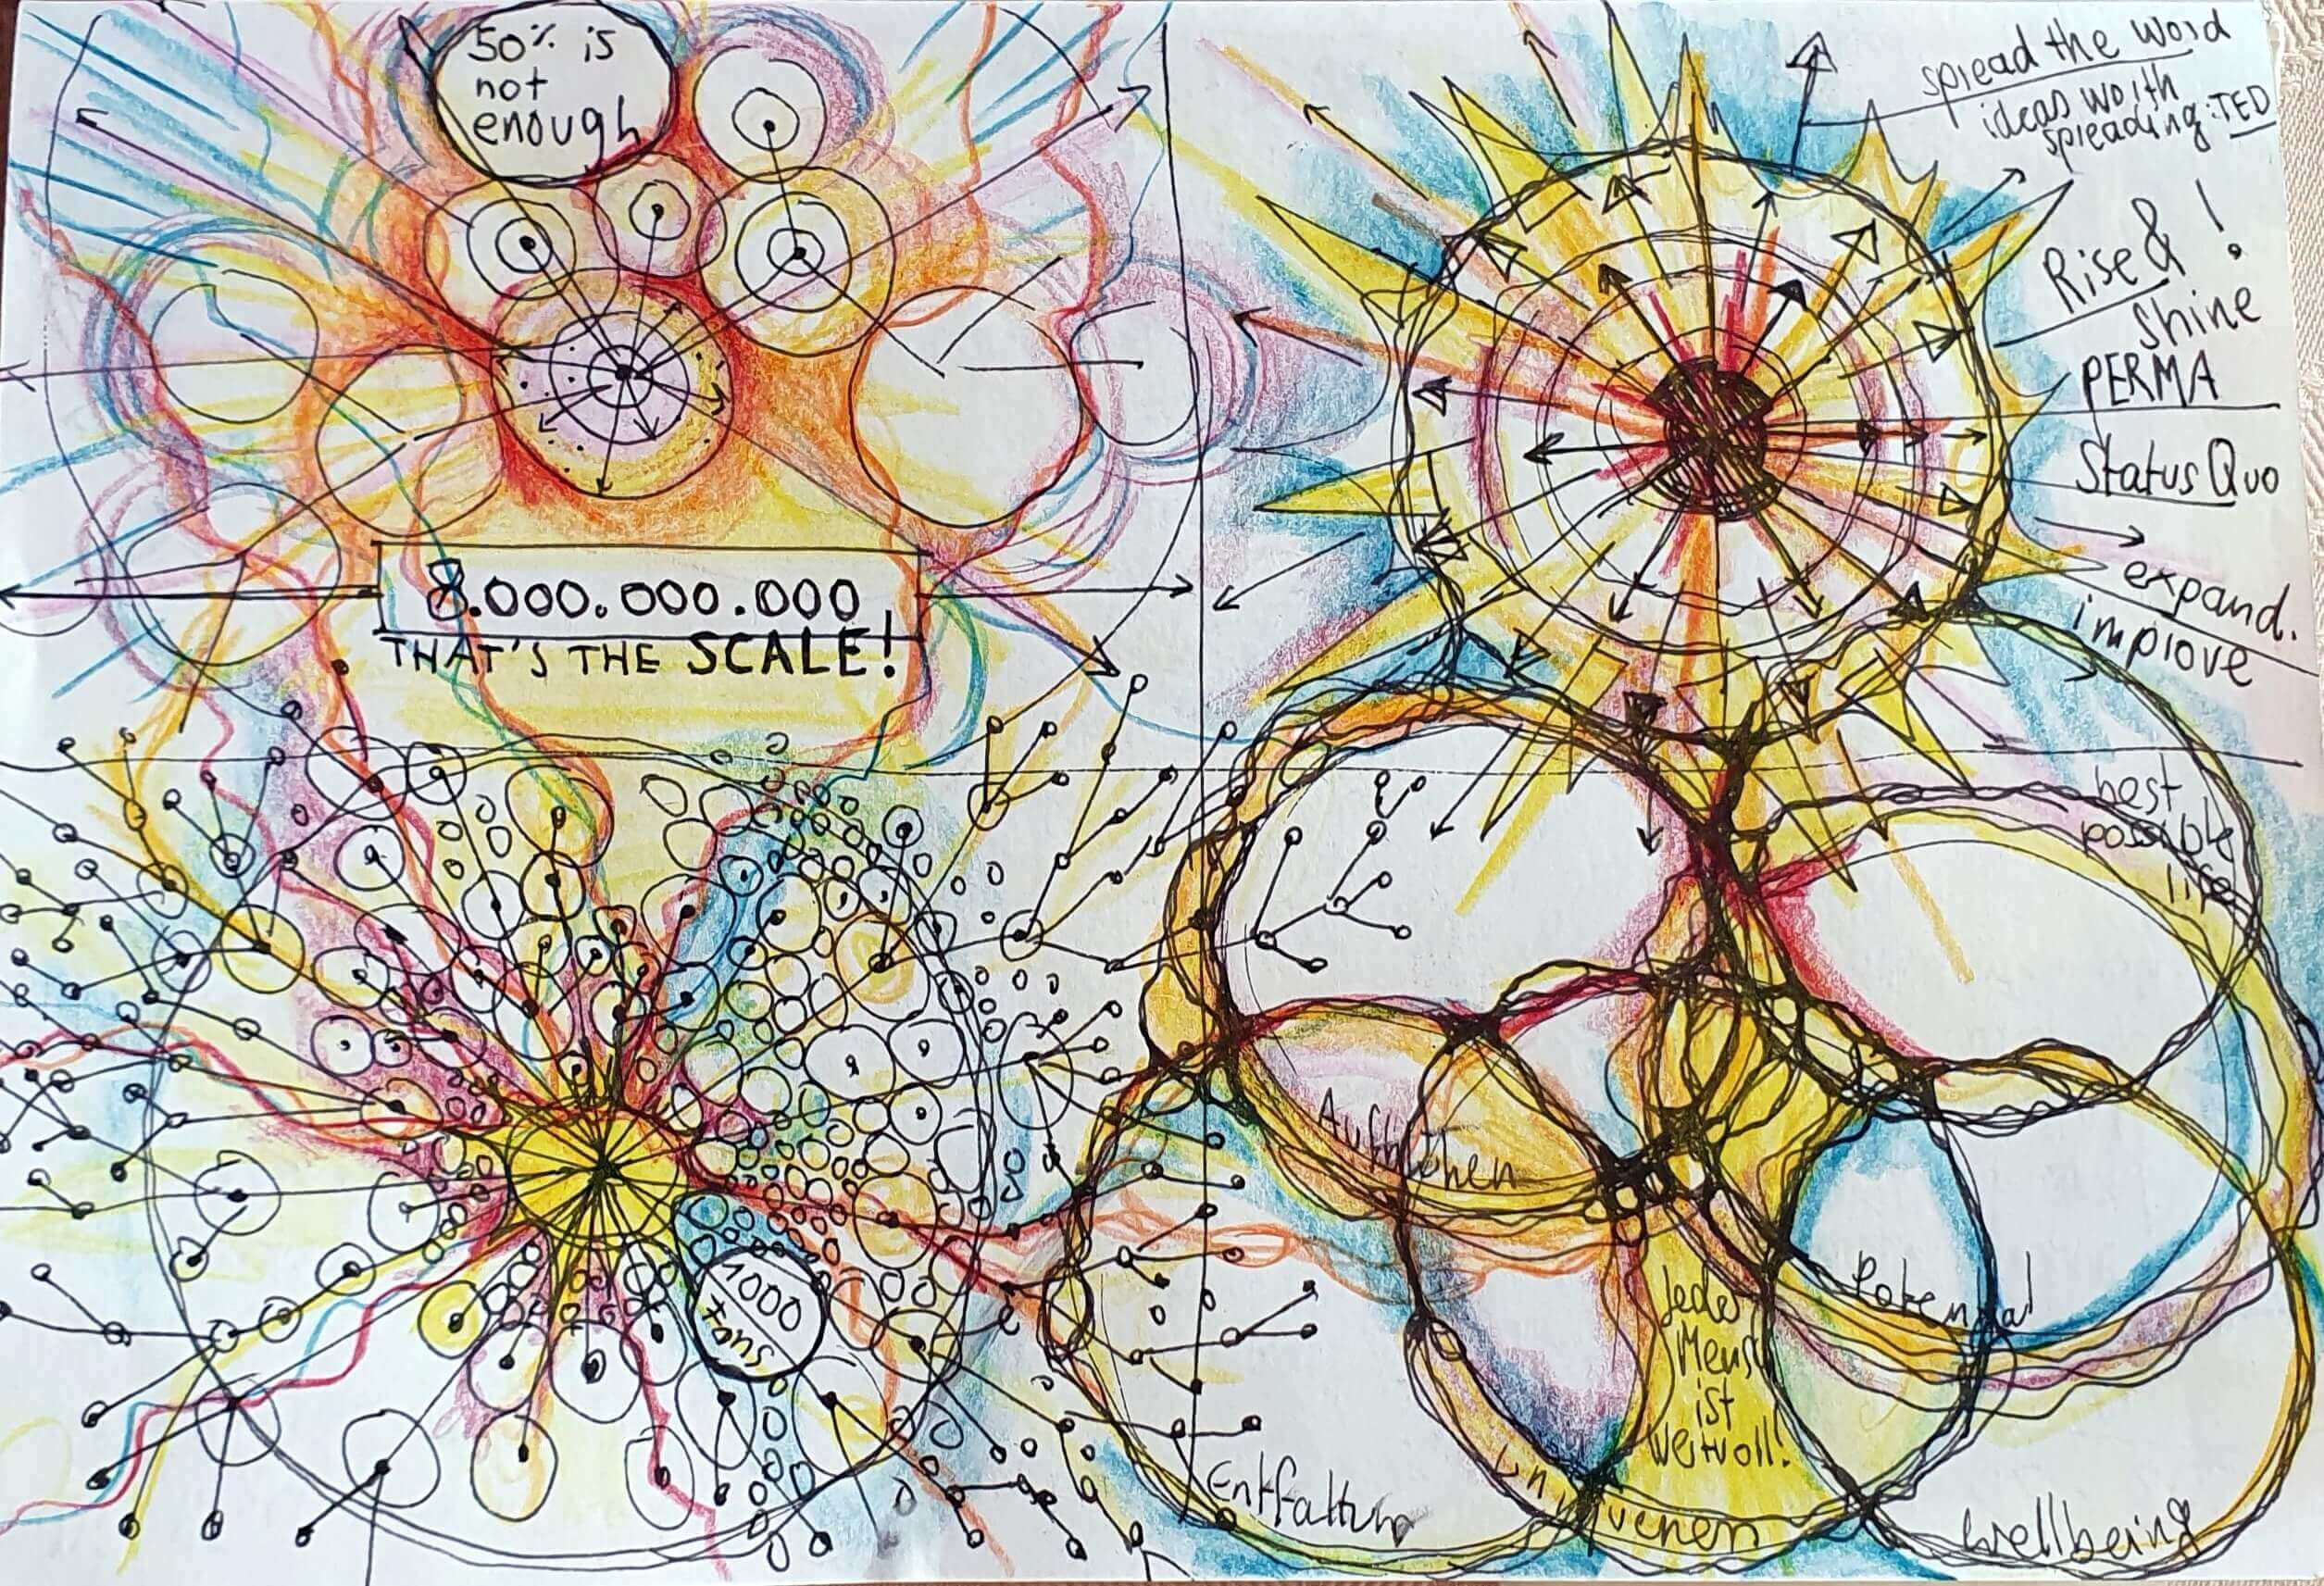 50% is
not
enough
8.000.000.000
THAT'S THE SCALE!
spread the word
ideas worth
spreading: TED
Rise & !
Shine
PERMA
Status Quo
expand.
improve
best
possible
life
Aufblühen
Potenzial
Jeder
Mensch
ist
wertvoll!
1000
Fans
Entfaltung
wellbeing